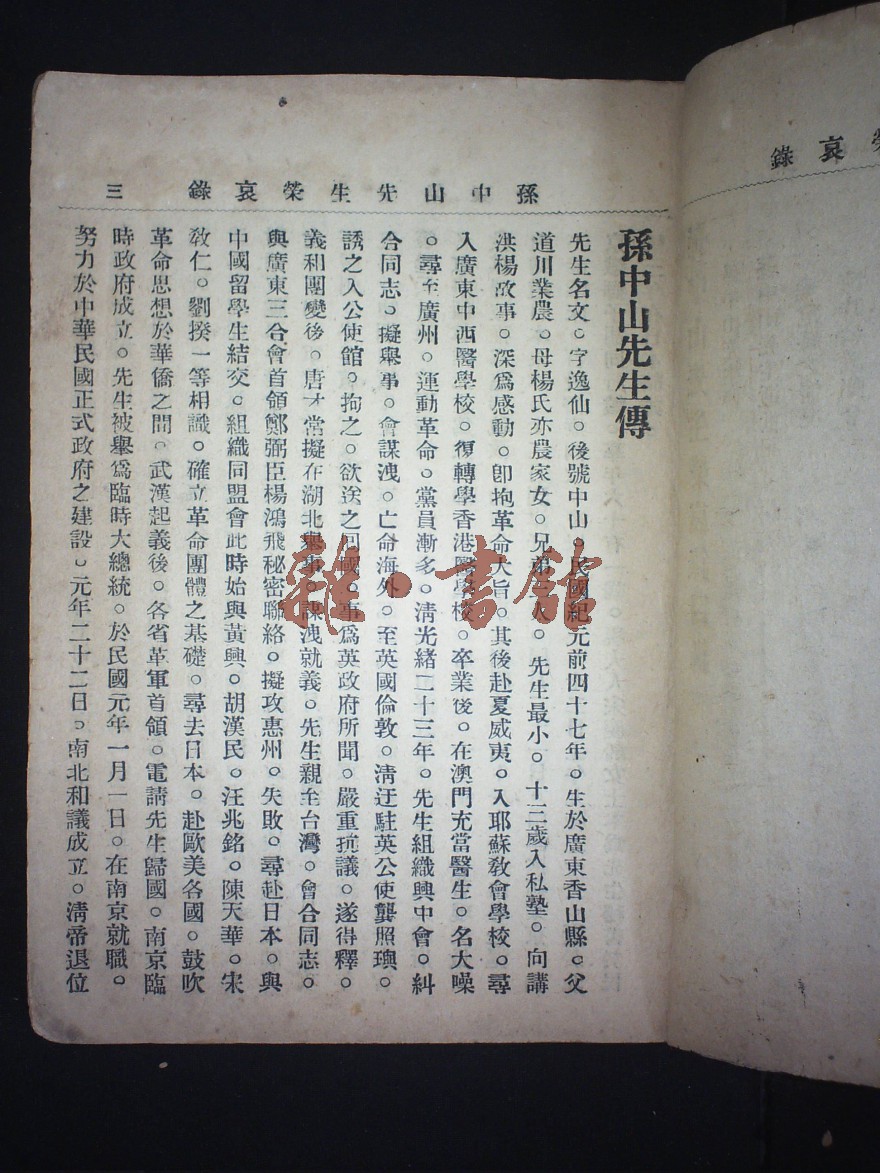 榮哀錄
孫中山先生榮哀錄 三
孫中山先生傳
先生名文。字逸仙。後號中山。民國紀元前四十七年。生於廣東香山縣。父
道川業農。母楊氏亦農家女。兄弟三人。先生最小。十三歲入私塾。向講
洪楊故事。深爲感動。卽抱革命大旨。其後赴夏威夷。入耶蘇敎會學校。尋
入廣東中西醫學校。復轉學香港醫學校。卒業後。在澳門充當醫生。名大噪
。尋至廣州。運動革命。黨員漸多。淸光緒二十三年。先生組織興中會。糾
合同志。擬舉事。會謀洩。亡命海外。至英國倫敦。淸廷駐英公使龔照璵。
誘之入公使館。拘之。欲送之回國。事爲英政府所聞。嚴重抗議。遂得釋。
義和團變後。唐才常擬在湖北舉事。謀洩就義。先生親至台灣。會合同志。
與廣東三合會首領鄭弼臣楊鴻飛秘密聯絡。擬攻惠州。失敗。尋赴日本。與
中國留學生結交。組織同盟會此時始與黃興。胡漢民。汪兆銘。陳天華。宋
敎仁。劉揆一等相識。確立革命團體之基礎。尋去日本。赴歐美各國。鼓吹
革命思想於華僑之間。武漢起義後。各省革軍首領。電請先生歸國。南京臨
時政府成立。先生被舉爲臨時大總統。於民國元年一月一日。在南京就職。
努力於中華民國正式政府之建設。元年二十二日。南北和議成立。淸帝退位
雜·書館